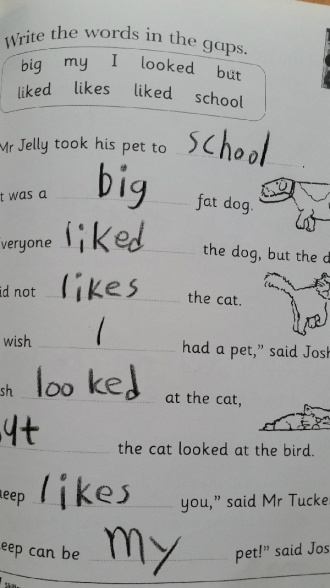 Write the words in the gaps.
big my I looked but
liked likes liked school
Mr Jelly took his pet to school
t was a big fat dog.
veryone liked the dog, but the d
id not likes the cat.
wish I had a pet," said Josh
sh looked at the cat,
ut the cat looked at the bird.
eep likes you," said Mr Tucke
eep can be my pet!" said Jos